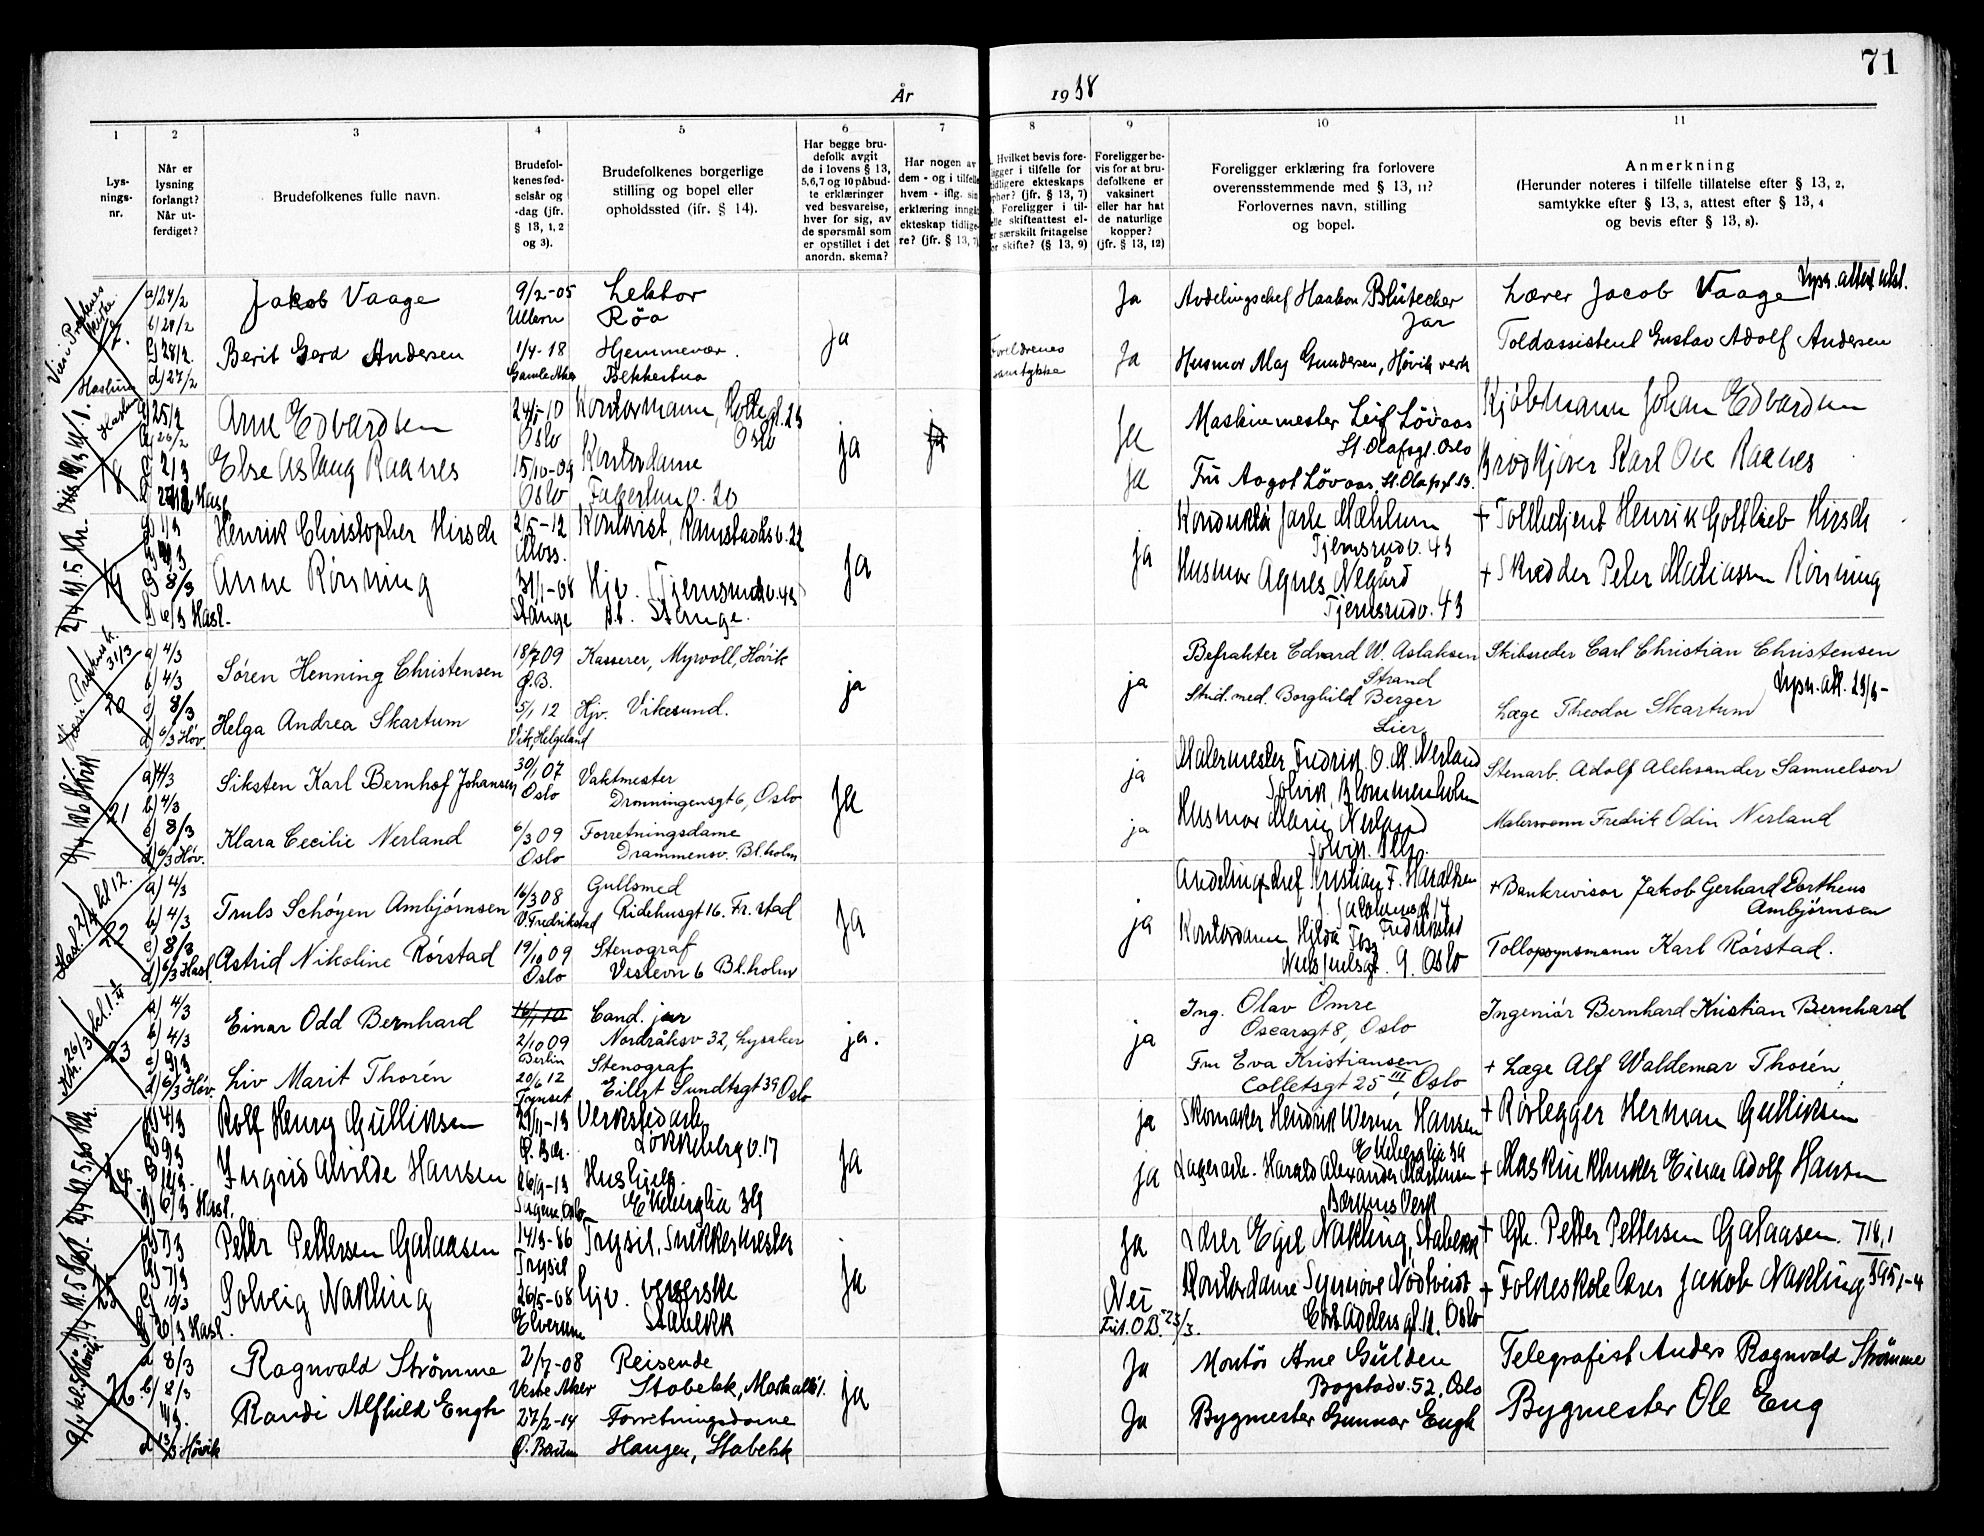 71
År 1938
1
2
3
4
5
6
7
8
9
10
11
Lys-
nings-
nr.
Når er
lysning
forlangt?
Når ut-
ferdiget?
Brudefolkenes fulle navn.
Brudefol-
kenes fød-
selsår og
-dag (jfr.
§ 13, 1, 2
og 3).
Brudefolkenes borgerlige
stilling og bopel eller
opholdssted (jfr. § 14).
Har begge bru-
defolk avgit
de i lovens § 13,
5,6,7 og 10 påbud-
te erklæringer
ved besvarelse,
hver for sig, av
de spørsmål som
er opstillet i det
anordn. skema?
Har nogen av
dem - og i tilfelle
hvem - iflg. sin
erklæring inngått
ekteskap tidlige-
re? (jfr. § 13, 7)
Hvilket bevis fore-
ligger i tilfelle for
tidligere ekteskaps
ophør? (jfr. § 13, 7)
Foreligger i til-
felle skifteattest el-
er særskilt fritagelse
or skifte? (§ 13, 9)
Foreligger be-
vis for at bru-
defolkene er
vaksinert
eller har hat
de naturlige
kopper?
(jfr. § 13, 12)
Foreligger erklæring fra forlovere
overensstemmende med § 13, 11?
Forlovernes navn, stilling
og bopel.
Anmerkning
(Herunder noteres i tilfelle tillatelse efter § 13, 2,
samtykke efter § 13, 3, attest efter § 13, 4
og bevis efter § 13, 8).
a) 24/2
b) 28/2
c) 28/2
d) 27/2
Haslum
Jakob Vaage
9/2-05
Ullern
Lektor
Røa
Ja
Ja
Avdelingschef Haakon Blütecher
Jar
Lærer Jacob Vaage
Lysn. attest utst.
Berit Gerd Andersen
1/4-18
Gamle Aker
Hjemmevær.
Bekkestua
Foreldrenes
samtykke
Ja
Husmor Mag Gundersen, Høvik verk
Toldassistent Gustav Adolf Andersen
Arne Edvardsen
24/5-10
Oslo
Kontormann, Holtegt. 23
Oslo
ja
ja
Ja
Maskinmester Leif Løvaas
St. Olafsgt. Oslo
Kjøbmann Johan Edvardsen
Else Aslaug Raanes
15/10-09
Oslo
Kontordame
Fagerlun v. 20
Ja
Fru Aagot Løvaas, St. Olafsgt 13.
Brødkjører Karl Ove Raanes
19
8/3
d) 6/3 Hasl.
Henrik Christopher Hirsch
2/5-12
Moss.
Kontorist, Ramstadås v. 22
Ja
ja
Konduktør Jarle Mæhlum
Tjernsrudv. 43
+ Tollbetjent Henrik Gottlieb Hirsch
Anne Rønning
31/1-08
Stange
Hjv. Tjernsrudv. 43
p.t. Stange.
Husmor Agnes Negård
Tjernsrudv. 43
+ Skredder Peter Matiassen Rønning
31/3
20
a) 4/3
b) 4/3
c) 8/3
d) 6/3 Høv.
Søren Henning Christensen
18/7 09
Ø.B.
Kasserer, Myrvoll, Høvik
ja
ja
Befrakter Edvard W. Aslaksen
Strand
Skibsreder Carl Christian Christensen
Lysn. att. 23/3-
Helga Andrea Skartum
5/1 12
Vik, Helgeland
Hjv. Vikesund.
Stud. med. Borghild Berger
Lier
Læge Theodor Skartum
21
a) 4/3
b) 4/3
c) 8/3
d) 6/3 Høv.
Siksten Karl Bernhof Johansen
30/1 07
Oslo
Vaktmester
Dronningensgt 6, Oslo
Ja
ja
Malermester Fredrik O. M. Nerland
Solvik, Blommenholm
Stenarb. Adolf Aleksander Samuelson
Klara Cecilie Nerland
6/3 09
Oslo
Forretningsdame
Drammensv. Bl.holm
ja
Husmor Marie Nerland
Malersvenn Fredrik Odin Nerland
Hasl. 2/4 kl 12.
22
a) 4/3
b) 4/3
c) 8/3
d) 6/3 Hasl.
Truls Schøyen Ambjørnsen
16/3 08
V. Fredrikstad
Gullsmed
Ridehusgt 16. Fr. stad
Ja
ja
Avdelingschef Kristian F. Haraldsen
Fredrikstad
+ Bankrevisor Jakob Gerhard Dorthens
Ambjørnsen
Astrid Nikoline Rørstad
19/10 09
Oslo
Stenograf
Veslevn 6 Bl.holm
Kontordame Hilda Foss
Niels Juelsgt. 9. Oslo
Tollopsynsmann Karl Rørstad.
23
a) 4/3
b) 4/3
c) 9/3
d) 6/3 Høv.
Einar Odd Bernhard
16/1 10
2/10 09
Berlin
Cand. jur
Nordråksv 32, Lysaker
ja.
ja
Ing. Olav Omre
Oscarsgt 8, Oslo
Ingeniør Bernhard Kristian Bernhard
Liv Marit Thorén
20/6 12
Tynset
Stenograf
Eilert Sundtsgt 39 Oslo
Fru Eva Kristiansen
Colletsgt 25 III, Oslo
+ Læge Alf Waldemar Thorén
d) 6/3 Hasl.
Rolf Henry Gulliksen
29/11-13
Ø. Bær.
Verkstedarb.
Løkkeberg v. 17
Ja
ja
Skomaker Hendrik Werner Hansen
Ekeberglia 39
+ Rørlegger Herman Gulliksen
Ingrid Alvilde Hansen
26/9-13
Hushjelp.
Ekeberglia 39
ja
Lagerarb. Harald Alexander Martinsen
Bærums Verk
+ Maskinklinker Einar Adolf Hansen
25
7/3
7/3
10/3
Hasl.
Petter Pettersen Galaasen
14/3-86
Trysil
Trysil, Snekkermester
Ja
Ja
Lærer Egil Nakling, Stabekk
+ Gb. Petter Pettersen Galaasen. 718,1
Solveig Nakling
26/5-08
Elverum
Hjv. veverske
Stabekk
Nei
23/3.
Kontordame Synnøve Nødtveidt
Cort Adelers gt. 12. Oslo
+ Folkeskolelærer Jakob Nakling 395,-4
26.
a 8/3
b/ 8/3
d 13/3 Høvik
Ragnvald Strømme
2/7-08
Vestre Aker
Reisende
Stabekk, Markallé 1.
ja
Ja
Montør Arne Gulden
Bogstadv. 52, Oslo
Telegrafist Anders Ragnvald Strømme
Randi Alfhild Engh
27/2-14
Ø. Bærum
Forretningsdame
Haugen, Stabekk
Ja
Bygmester Gunnar Engh
Bygmester Ole Eng